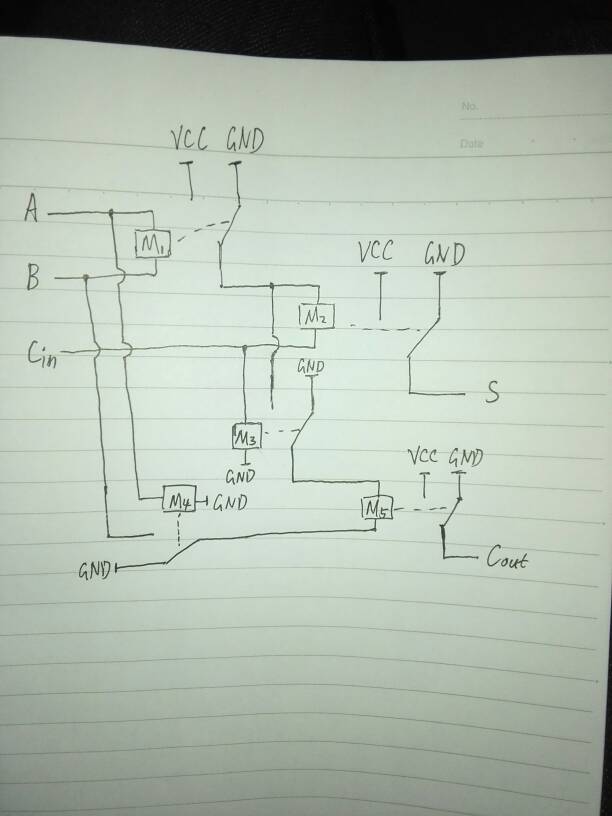 No.
Date
VCC GND
A
M1
B
VCC GND
M2
Cin
GND
S
M3
VCC GND
GND
M4 GND
M5
GND
Cout